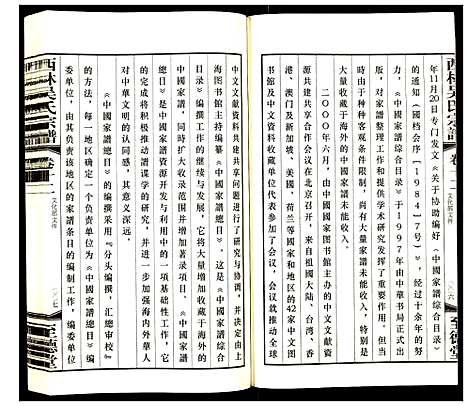 西林吴氏宗譜
卷一
文化部文件
六
至德堂
年11月20日专门发文《关于协助编好《中國家譜綜合目录》
的通知（國档会序［1984］7号）》，经过十余年的努
力，《中國家譜綜合目录》于1997年由中華书局正式出版，
对家譜整理工作和提供学术研究发挥了重要作用。但当
时由于种种客观条件限制，尚有大量家譜未能收入，特别是
大量收藏于海外的中國家譜未能收入。
二〇〇〇年六月，由國家图书館主办的中文文献资
源共建共享合作会议在北京召开，来自祖國大陆、台湾、香
港、澳门及新加坡、美國、荷兰等國家和地區的42家中文
文献资料收藏單位代表参加了会议，会议就推动全球
中文文献资料共建共享问题进行了研究与协调，并决定由上
海图书館主持编纂《中國家譜总目》。《中國家譜总目》是《中國家譜綜合
目录》编撰工作的继续与发展，它将大量增加收藏于海外的
中國家譜，同时扩大收录范围并增加著录项目。《中國家譜
总目》是中國家譜资源开发与利用中的一项基础性工作，它
的完成将积极推动譜谍学的研究，并进一步加强海内外華人
对中華文明的认同感，意义深远。
《中國家譜总目》的编撰采用『分头编撰，汇總审校』
的方法，每一地区确定一个负责单位为《中國家譜总目》编
委单位，由其负责该地区的家譜条目的编制工作，编委
西林吴氏宗譜
卷一
文化部文件
七
至德堂